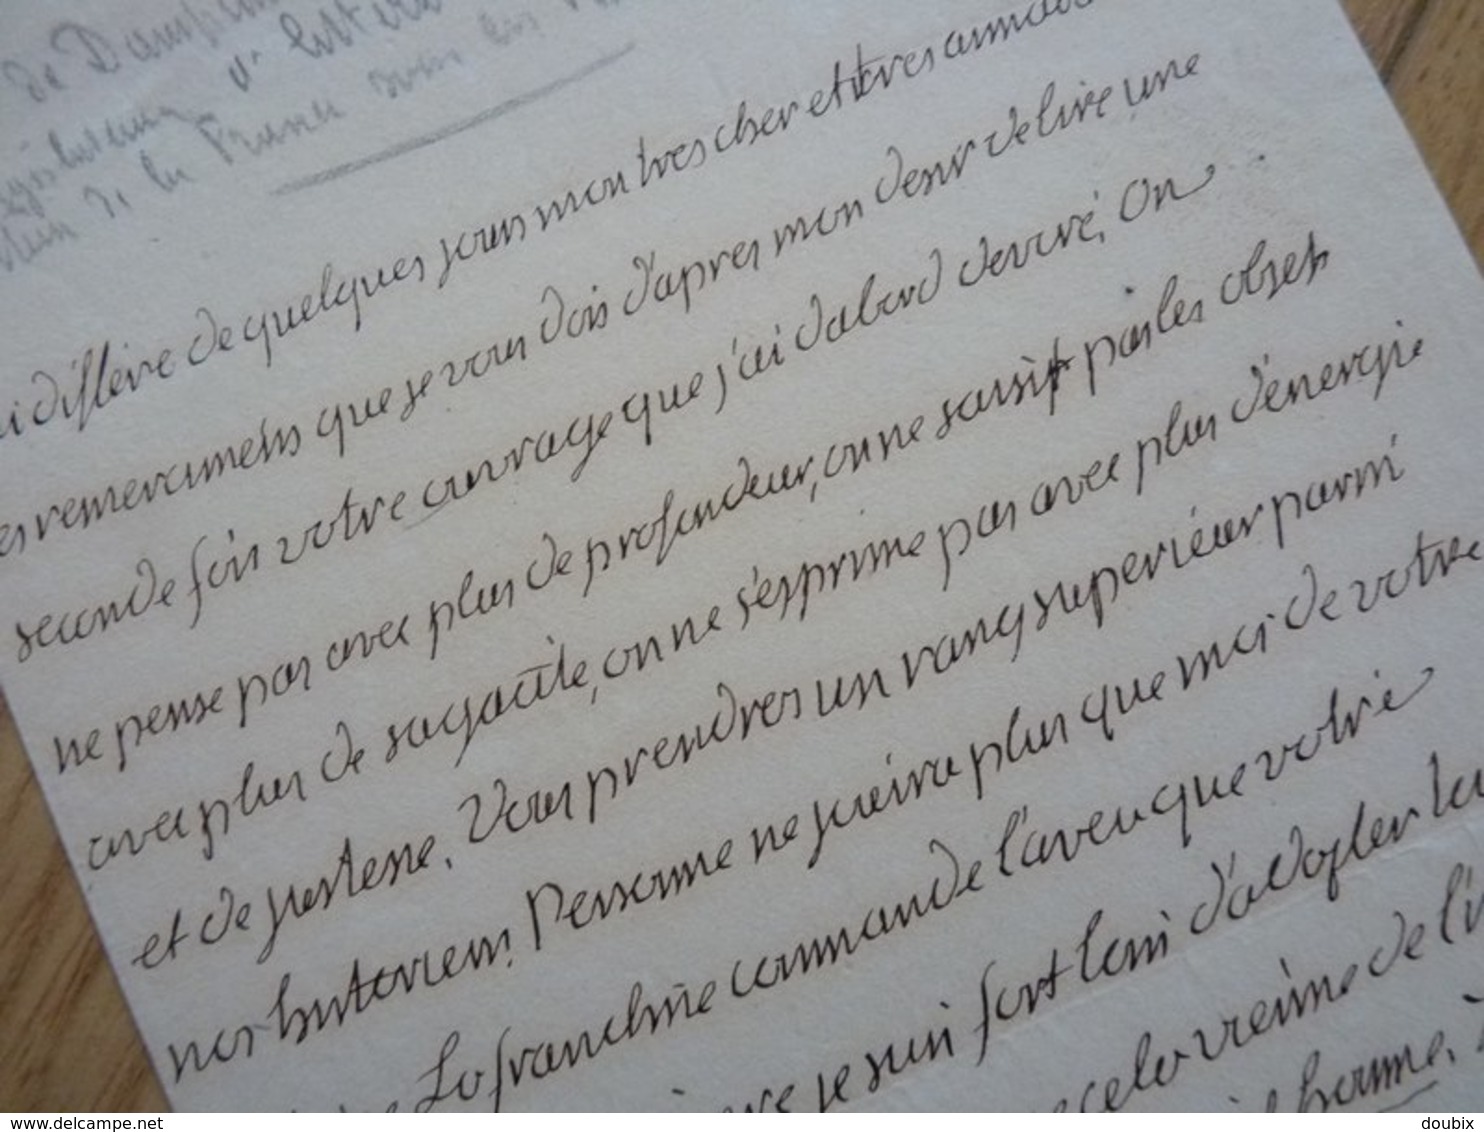 de Dampm
d'histoire
de la France sous les
i différé de quelques jours mon tres cher et tres aimab
es remerciments que je vous dois d'apres mon desir de lire une
seconde fois votre ouvrage que j'ai dabord devoré. On
ne pense pas avec plus de profondeur, on ne saisit pas les objets
avec plus de sagacité, on ne s'exprime pas avec plus d'énergie
et de justesse. Vous prendres un rang superieur parmi
nos historiens. Personne ne jouira plus que moi de votre
La franchise commande l'aveu que votre
je suis fort loin d'adopter la
de l'i
homme.
www.delcampe.net
doubix